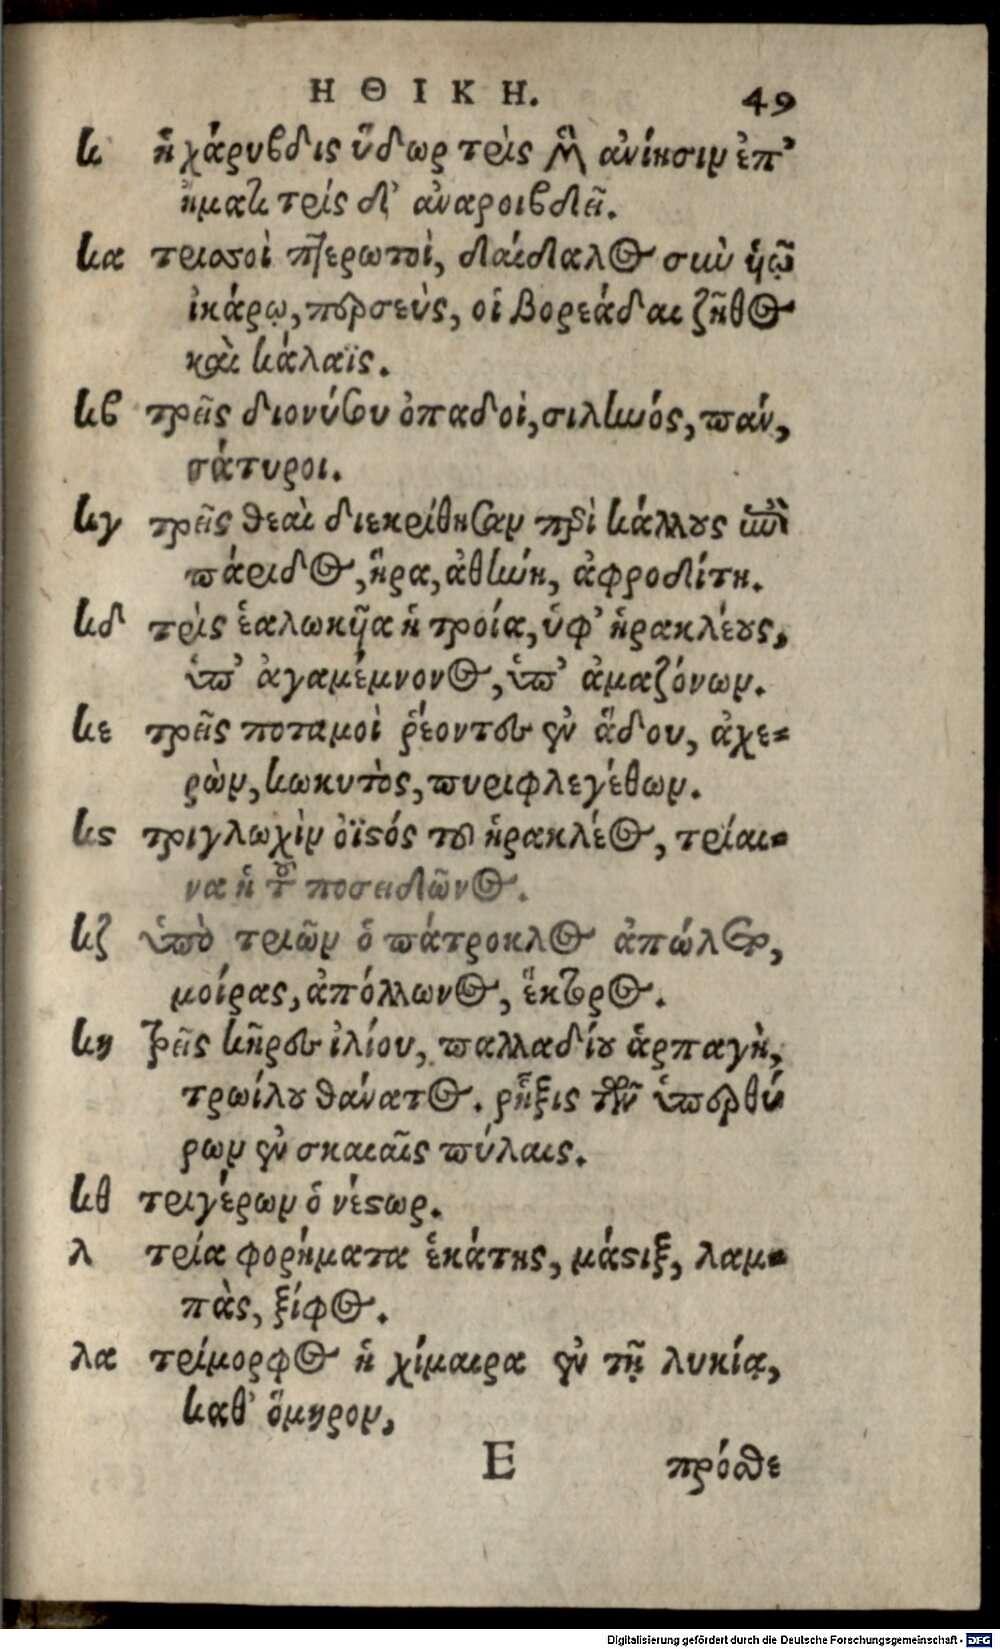 ΗΘΙΚΗ. 49
κ ἡ χάρυβδις ὕδωρ τρὶς μὲν ἀνίησιν ἐπ’
ἤματι τρίς δ’ ἀναροιβδεῖ.
κα τρισσοὶ πτερωτοὶ, δαίδαλος σὺν ἱῷ
ἰκάρῳ, περσεὺς, οἱ βορεάδαι ζῆθος
καὶ κάλαϊς.
κβ τρεῖς διονύσου ὀπαδοὶ, σιληνός, πάν,
σάτυροι.
κγ τρεῖς θεαὶ διεκρίθησαν περὶ κάλλους ἐπὶ
πάριδος, ἥρα, ἀθήνη, ἀφροδίτη.
κδ τρὶς ἑαλωκυῖα ἡ τροία, ὑφ’ ἡρακλέους,
ὑπ’ ἀγαμέμνονος, ὑπ’ ἀμαζόνων.
κε τρεῖς ποταμοὶ ῥέοντες ἐν ἅδου, ἀχε-
ρὼν, κωκυτὸς, πυριφλεγέθων.
κϛ τριγλωχὶν ὀϊστός τοῦ ἡρακλέος, τρίαι-
να ἡ τοῦ ποσειδῶνος.
κζ ὑπὸ τριῶν ὁ πάτροκλος ἀπώλετο,
μοίρας, ἀπόλλωνος, ἕκτορος.
κη τρεῖς κῆρες ἰλίου, παλλαδίου ἁρπαγὴ,
τρωίλου θάνατος. ῥῆξις τῶν ὑπερθύ
ρων ἐν σκαιαῖς πύλαις.
κθ τριγέρων ὁ νέστωρ.
λ τρία φορήματα ἑκάτης, μάστιξ, λαμ-
πὰς, ξίφος.
λα τρίμορφος ἡ χίμαιρα ἐν τῇ λυκίᾳ,
καθ’ ὅμηρον,
Ε πρόσθε
Digitalisierung gefördert durch die Deutsche Forschungsgemeinschaft - DFG